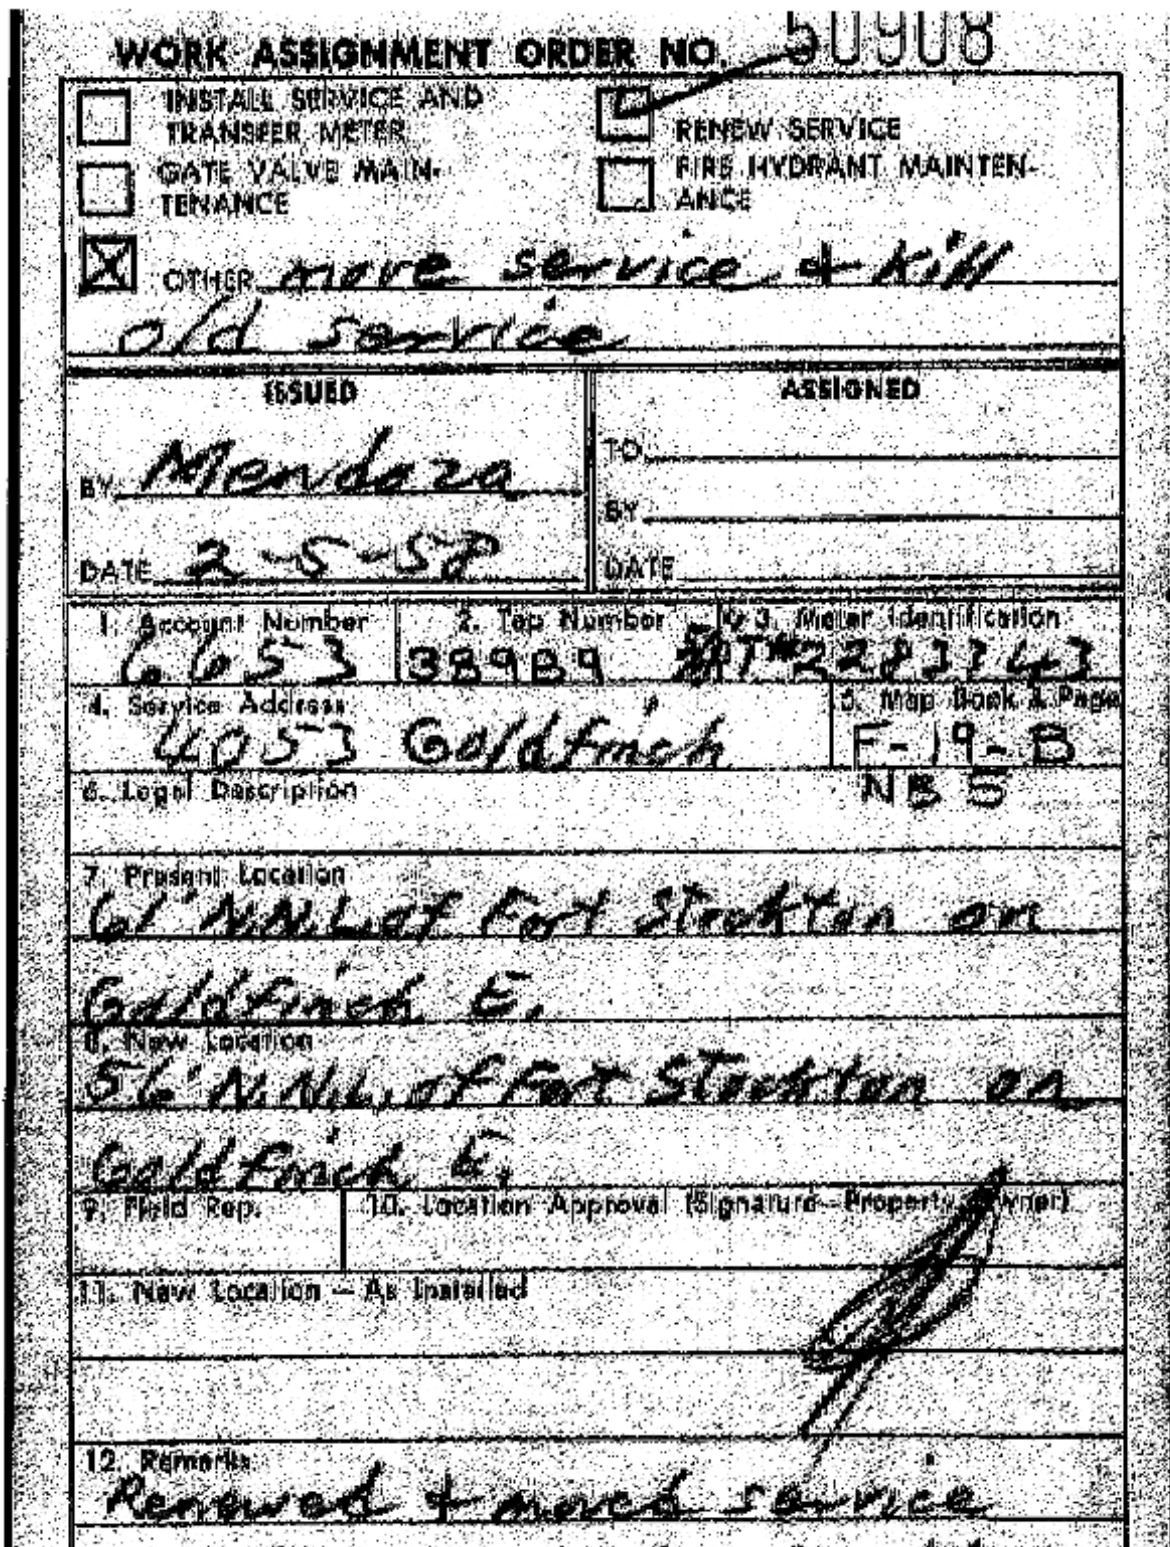 WORK ASSIGNMENT ORDER NO. 50908
INSTALL SERVICE AND
TRANSFER METER
RENEW SERVICE
GATE VALVE MAIN-
TENANCE
FIRE HYDRANT MAINTEN-
ANCE
OTHER move service & kill
old service
ISSUED
ASSIGNED
BY Mendoza
TO
BY
DATE 2-5-58
DATE
1. Account Number 2. Tap Number 3. Meter Identification
6653 38989 2283743
4. Service Address 5. Map Book & Page
4053 Goldfinch F-19-B
6. Legal Description NB 5
7. Present Location
61' N.N.L. of Fort Stockton on
Goldfinch E.
8. New Location
56' N.N.L. of Fort Stockton on
Goldfinch E.
9. Field Rep. 10. Location Approval (Signature—Property Owner)
11. New Location — As Installed
12. Remarks
Renewed & moved service